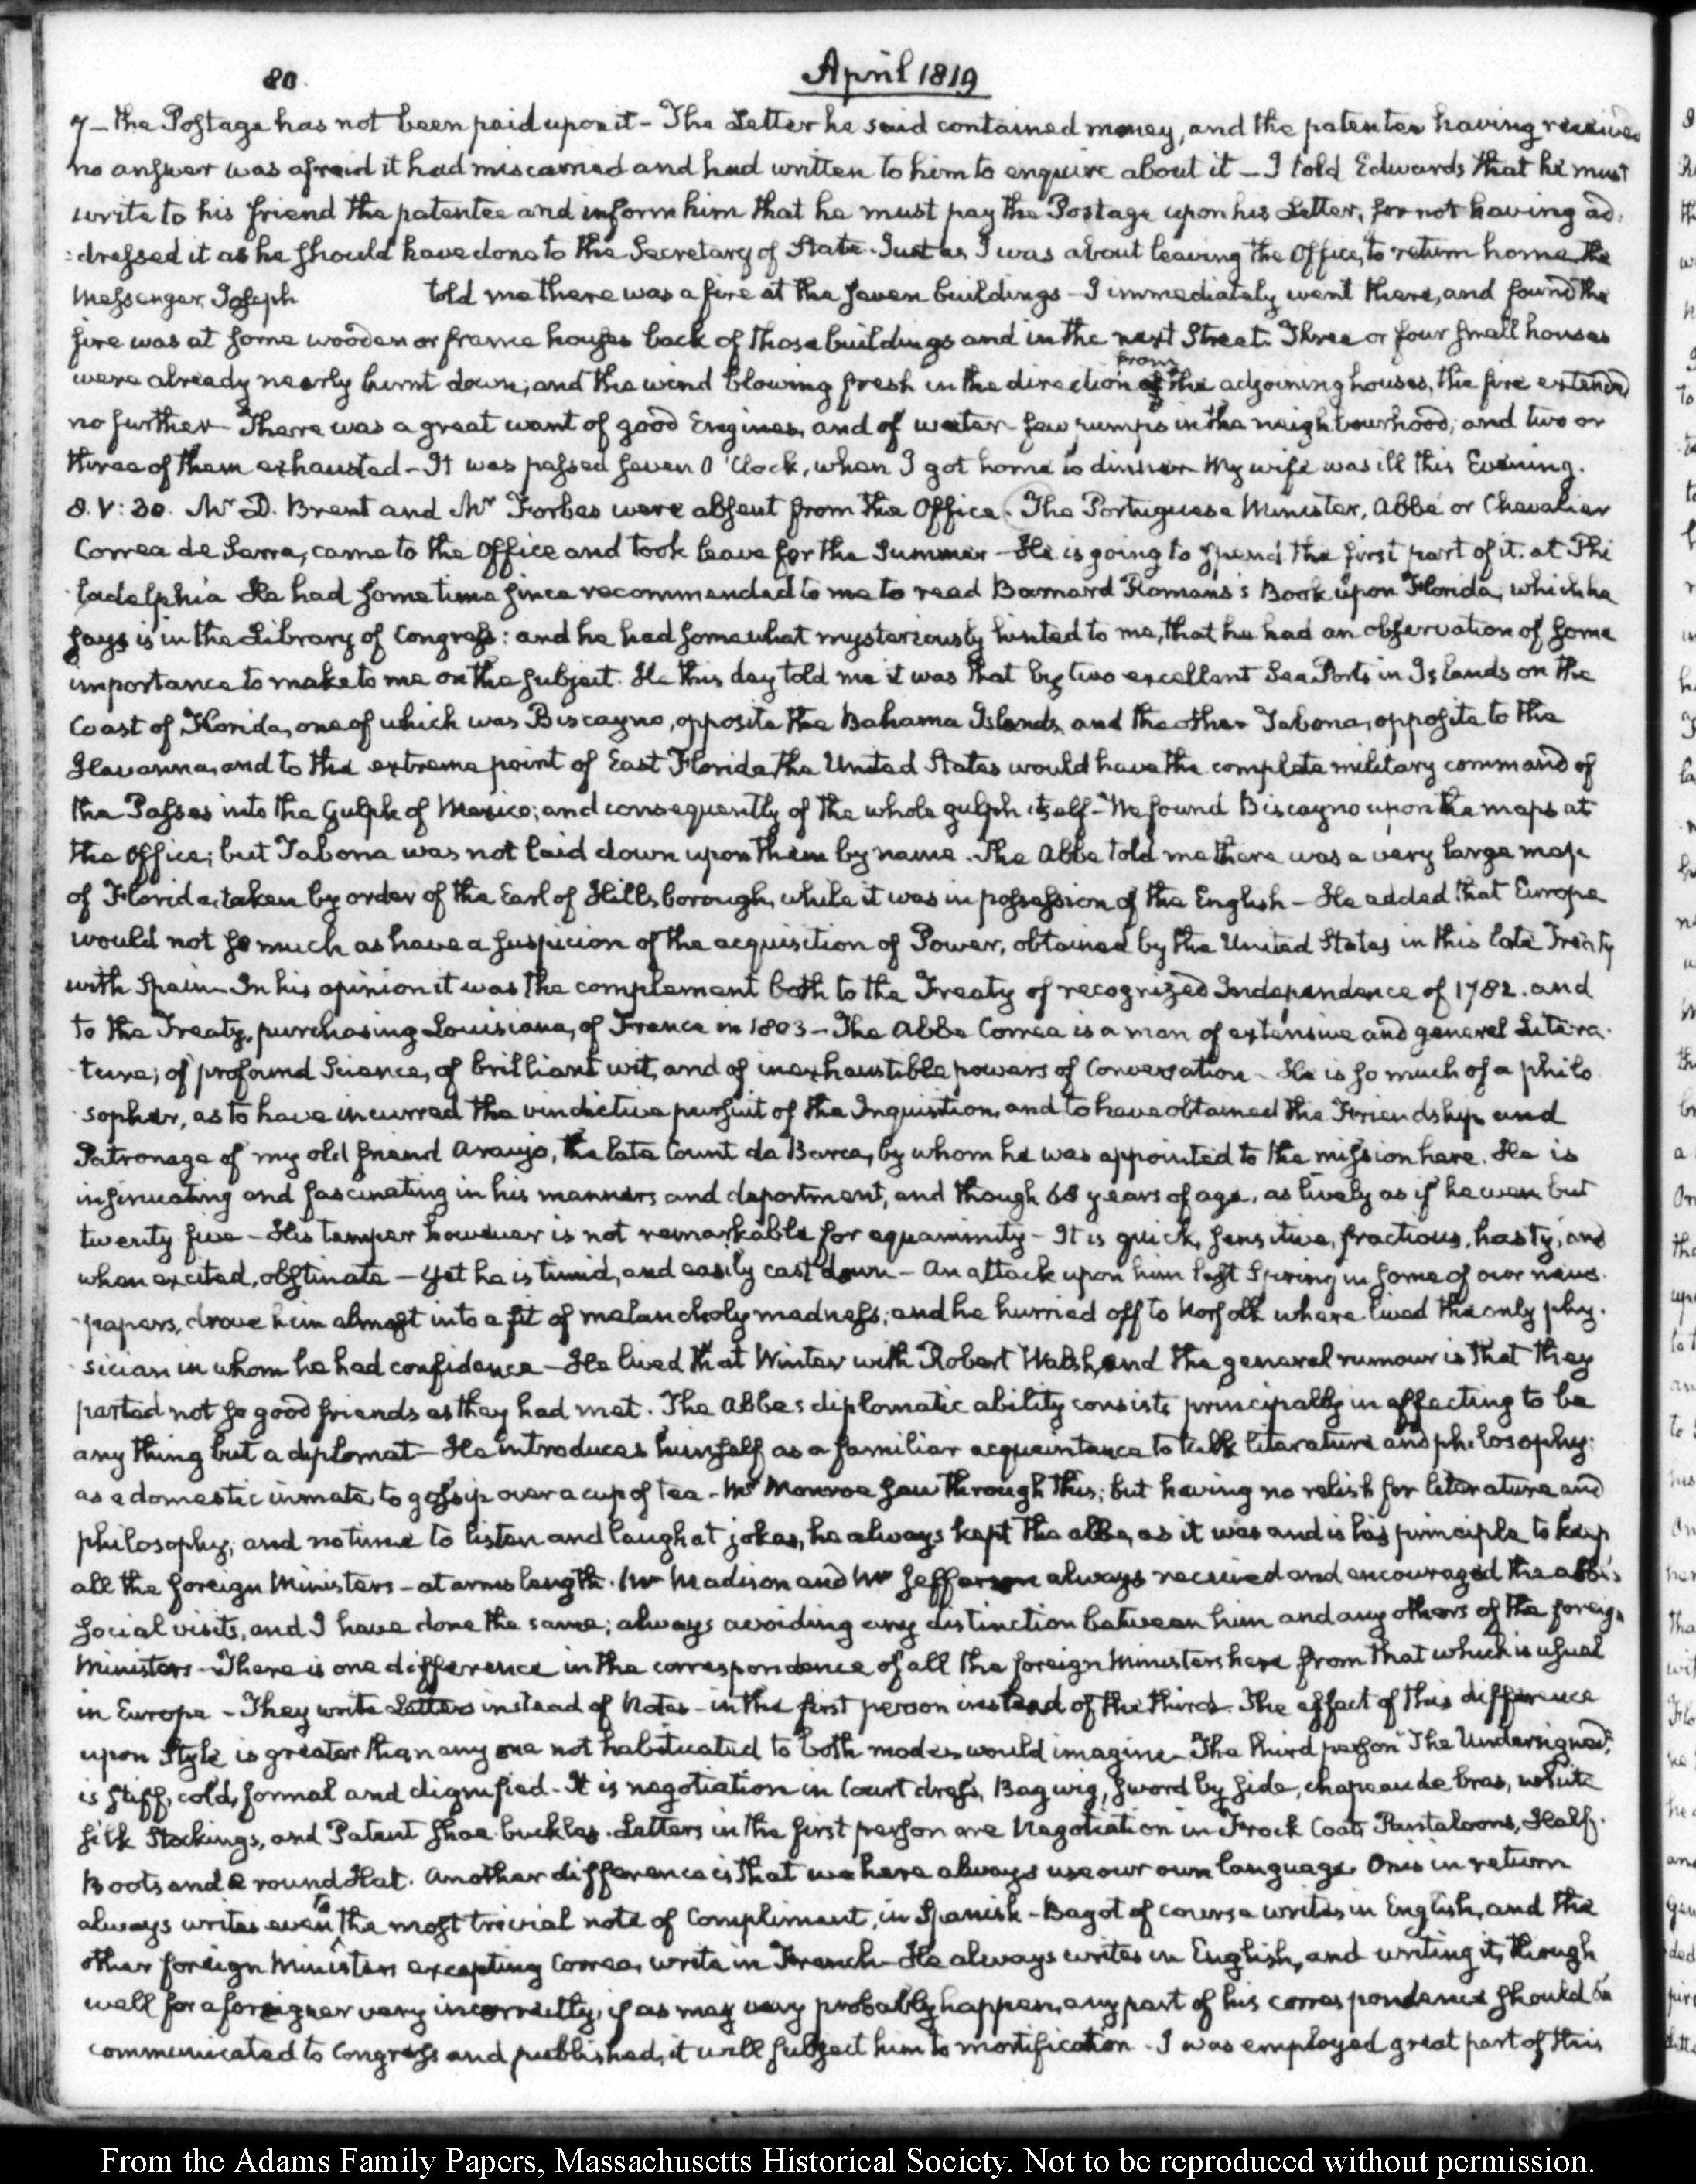 80.
April 1819
7 — the Postage has not been paid upon it — The Letter he said contained money, and the patentee having received
no answer was afraid it had miscarried and had written to him to enquire about it — I told Edwards that he must
write to his friend the patentee and inform him that he must pay the Postage upon his Letter, for not having ad-
:dressed it as he should have done to the Secretary of State. Just as I was about leaving the Office, to return home, the
Messenger, Joseph told me there was a fire at the seven buildings — I immediately went there, and found the
fire was at some wooden or frame houses back of those buildings and in the next Street. Three or four small houses
were already nearly burnt down; and the wind blowing fresh in the direction from the adjoining houses, the fire extended
no further — There was a great want of good Engines, and of water — few pumps in the neighbourhood; and two or
three of them exhausted — It was passed seven O 'Clock, when I got home to dinner. My wife was ill this Evening.
8. V: 30. Mr D. Brent and Mr Forbes were absent from the Office. The Portuguese Minister, Abbé or Chevalier
Correa de Serra, came to the Office and took leave for the Summer — He is going to spend the first part of it. at Phi
-ladelphia He had some time since recommended to me to read Barnard Romans's Book upon Florida, which he
says is in the Library of Congress: and he had somewhat mysteriously hinted to me, that he had an observation of some
importance to make to me on the subject. He this day told me it was that by two excellent Sea Ports in Islands on the
Coast of Florida, one of which was Biscayno, opposite the Bahama Islands, and the other Tabona, opposite to the
Havanna, and to the extreme point of East Florida the United States would have the complete military command of
the Passes into the Gulph of Mexico; and consequently of the whole gulph itself — We found Biscayno upon the maps at
the Office; but Tabona was not laid down upon them by name. The Abbe told me there was a very large map
of Florida, taken by order of the Earl of Hillsborough, while it was in possession of the English — He added that Europe
would not so much as have a suspicion of the acquisition of Power, obtained by the United States in this late Treaty
with Spain — In his opinion it was the complement both to the Treaty of recognized Independence of 1782. and
to the Treaty, purchasing Louisiana, of France in 1803 — The Abbe Correa is a man of extensive and general Litera-
-ture; of profound Science, of brilliant wit, and of inexhaustible powers of Conversation — He is so much of a philo
-sopher, as to have incurred the vindictive pursuit of the Inquisition, and to have obtained the Friendship and
Patronage of my old friend Araujo, the late Count da Barca, by whom he was appointed to the mission here. He is
insinuating and fascinating in his manners and deportment, and though 68 years of age, as lively as if he were but
twenty five — His temper however is not remarkable for equanimity — It is quick, sensitive, fractious, hasty, and
when excited, obstinate — yet he is timid, and easily cast down — An attack upon him last Spring in some of our news-
-papers, drove him almost into a fit of melancholy madness; and he hurried off to Norfolk where lived the only phy-
-sician in whom he had confidence — He lived that Winter with Robert Walsh, and the general rumour is that they
parted not so good friends as they had met. The Abbe's diplomatic ability consists principally in affecting to be
any thing but a diplomat — He introduces himself as a familiar acquaintance to talk literature and philosophy:
as a domestic inmate, to gossip over a cup of tea — Mr Monroe saw through this; but having no relish for literature and
philosophy, and no time to listen and laugh at jokes, he always kept the abbe, as it was and is his principle to keep
all the foreign Ministers — at arms length. Mr Madison and Mr Jefferson always received and encouraged the abbé's
social visits, and I have done the same; always avoiding any distinction between him and any others of the foreign
Ministers — There is one difference in the correspondence of all the foreign Ministers here from that which is usual
in Europe — They write Letters instead of Notes — in the first person instead of the third. The effect of this difference
upon Style is greater than any one not habituated to both modes would imagine — The third person "The Undersigned,"
is stiff, cold, formal and dignified — It is negotiation in Court dress, Bag wig, sword by side, chapeau de bras, white
silk Stockings, and Patent shoe-buckles. Letters in the first person are Negotiation in Frock Coat, Pantaloons, Half-
Boots and a round Hat. Another difference is that we here always use our own language. Onis in return
always writes even to the most trivial note of Compliment, in Spanish — Bagot of course writes in English, and the
other foreign Ministers excepting Correa, write in French — He always writes in English, and writing it, though
well for a foreigner very incorrectly, if as may very probably happen, any part of his correspondence should be
communicated to Congress and published, it will subject him to mortification. I was employed great part of this
From the Adams Family Papers, Massachusetts Historical Society. Not to be reproduced without permission.